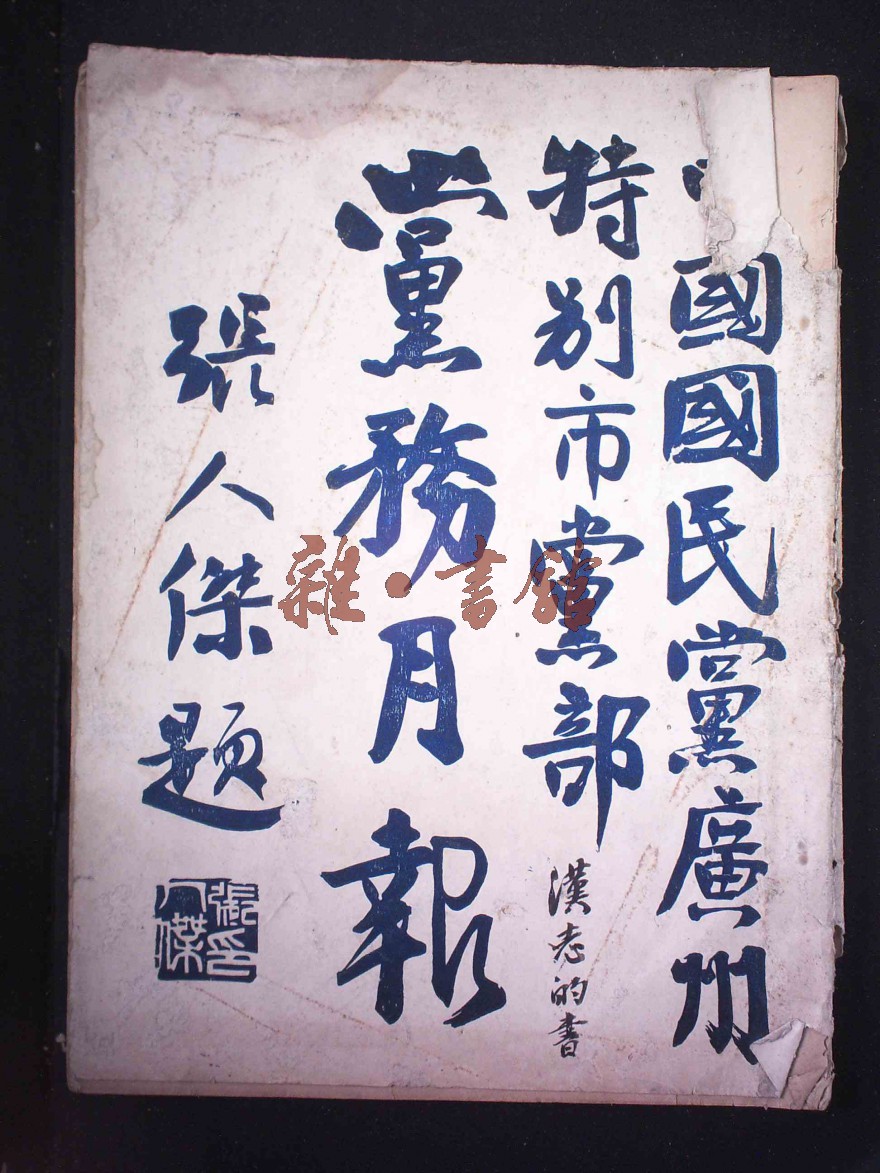 國國民黨廣州
特别市黨部
漢志的書
黨務月報
張人傑題
張人傑印
雜·書館